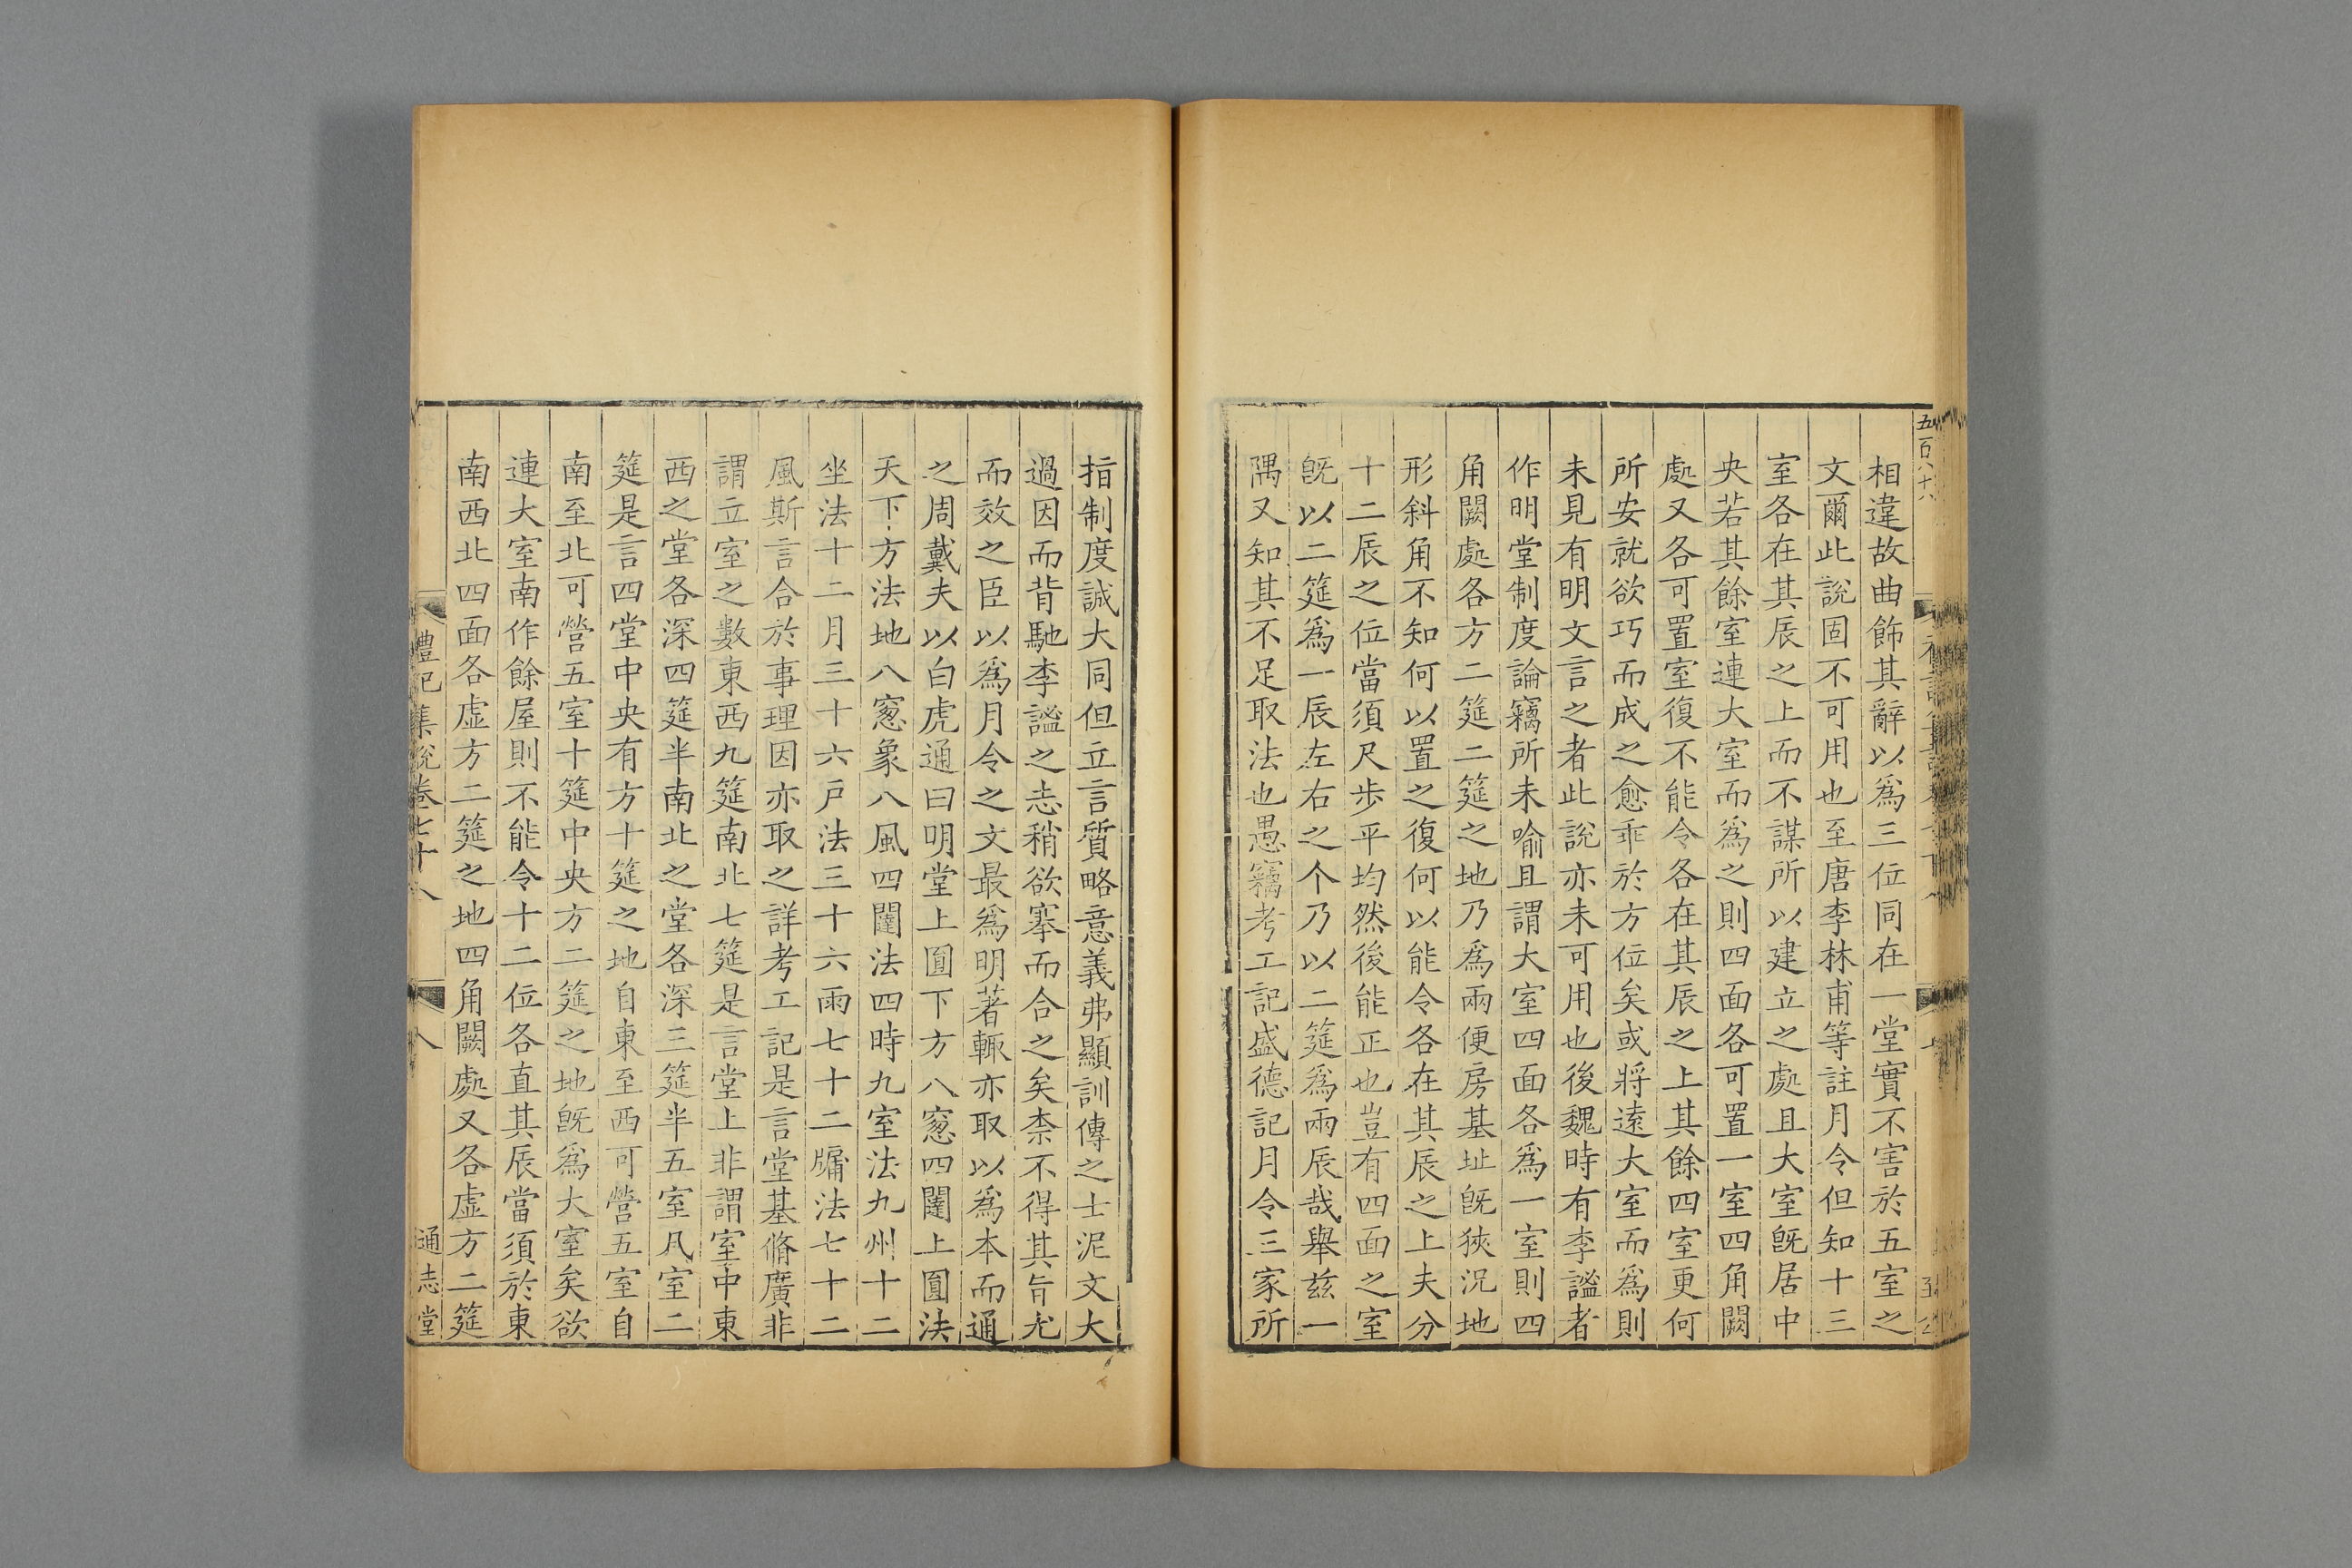 五百八十八
相違故曲飾其辭以爲三位同在一堂實不害於五室之
文爾此說固不可用也至唐李林甫等註月令但知十三
室各在其辰之上而不謀所以建立之處且大室旣居中
央若其餘室連大室而爲之則四面各可置一室四角闕
處又各可置室復不能令各在其辰之上其餘四室更何
所安就欲巧而成之愈乖於方位矣或將遠大室而爲則
未見有明文言之者此說亦未可用也後魏時有李謐者
作明堂制度論竊所未喻且謂大室四面各爲一室則四
角闕處各方二筵二筵之地乃爲兩便房基址旣狹況地
形斜角不知何以置之復何以能令各在其辰之上夫分
十二辰之位當須尺步平均然後能正也豈有四面之室
旣以二筵爲一辰左右之个乃以二筵爲兩辰哉舉茲一
隅又知其不足取法也愚竊考工記盛德記月令三家所
指制度誠大同但立言質略意義弗顯訓傳之士泥文大
過因而背馳李謐之志稍欲搴而合之矣柰不得其旨尤
而效之臣以爲月令之文最爲明著輒亦取以爲本而通
之周戴夫以白虎通曰明堂上圓下方八窻四闥上圓法
天下方法地八窻象八風四闥法四時九室法九州十二
坐法十二月三十六戶法三十六雨七十二牖法七十二
風斯言合於事理因亦取之詳考工記是言堂基脩廣非
謂立室之數東西九筵南北七筵是言堂上非謂室中東
西之堂各深四筵半南北之堂各深三筵半五室凡室二
筵是言四堂中央有方十筵之地自東至西可營五室自
南至北可營五室十筵中央方二筵之地旣爲大室矣欲
連大室南作餘屋則不能令十二位各直其辰當須於東
南西北四面各虛方二筵之地四角闕處又各虛方二筵
禮記集說卷七十八
八
通志堂